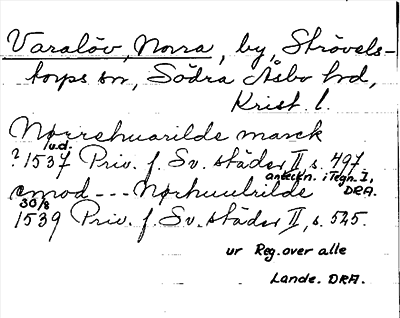 Varalöv, Norra, by, Strövels-
torps sn, Södra Åsbo hd,
Krist. l.
Nørrehuarilde marck
u.d.
? 1537 Priv. f. Sv. städer II, s. 497
anteckn. i Tegn. I,
emod --- Nørhuulrilde DRA.
30/8
1539 Priv. f. Sv. städer II, s. 525.
ur Reg. over alle
Lande. DRA.